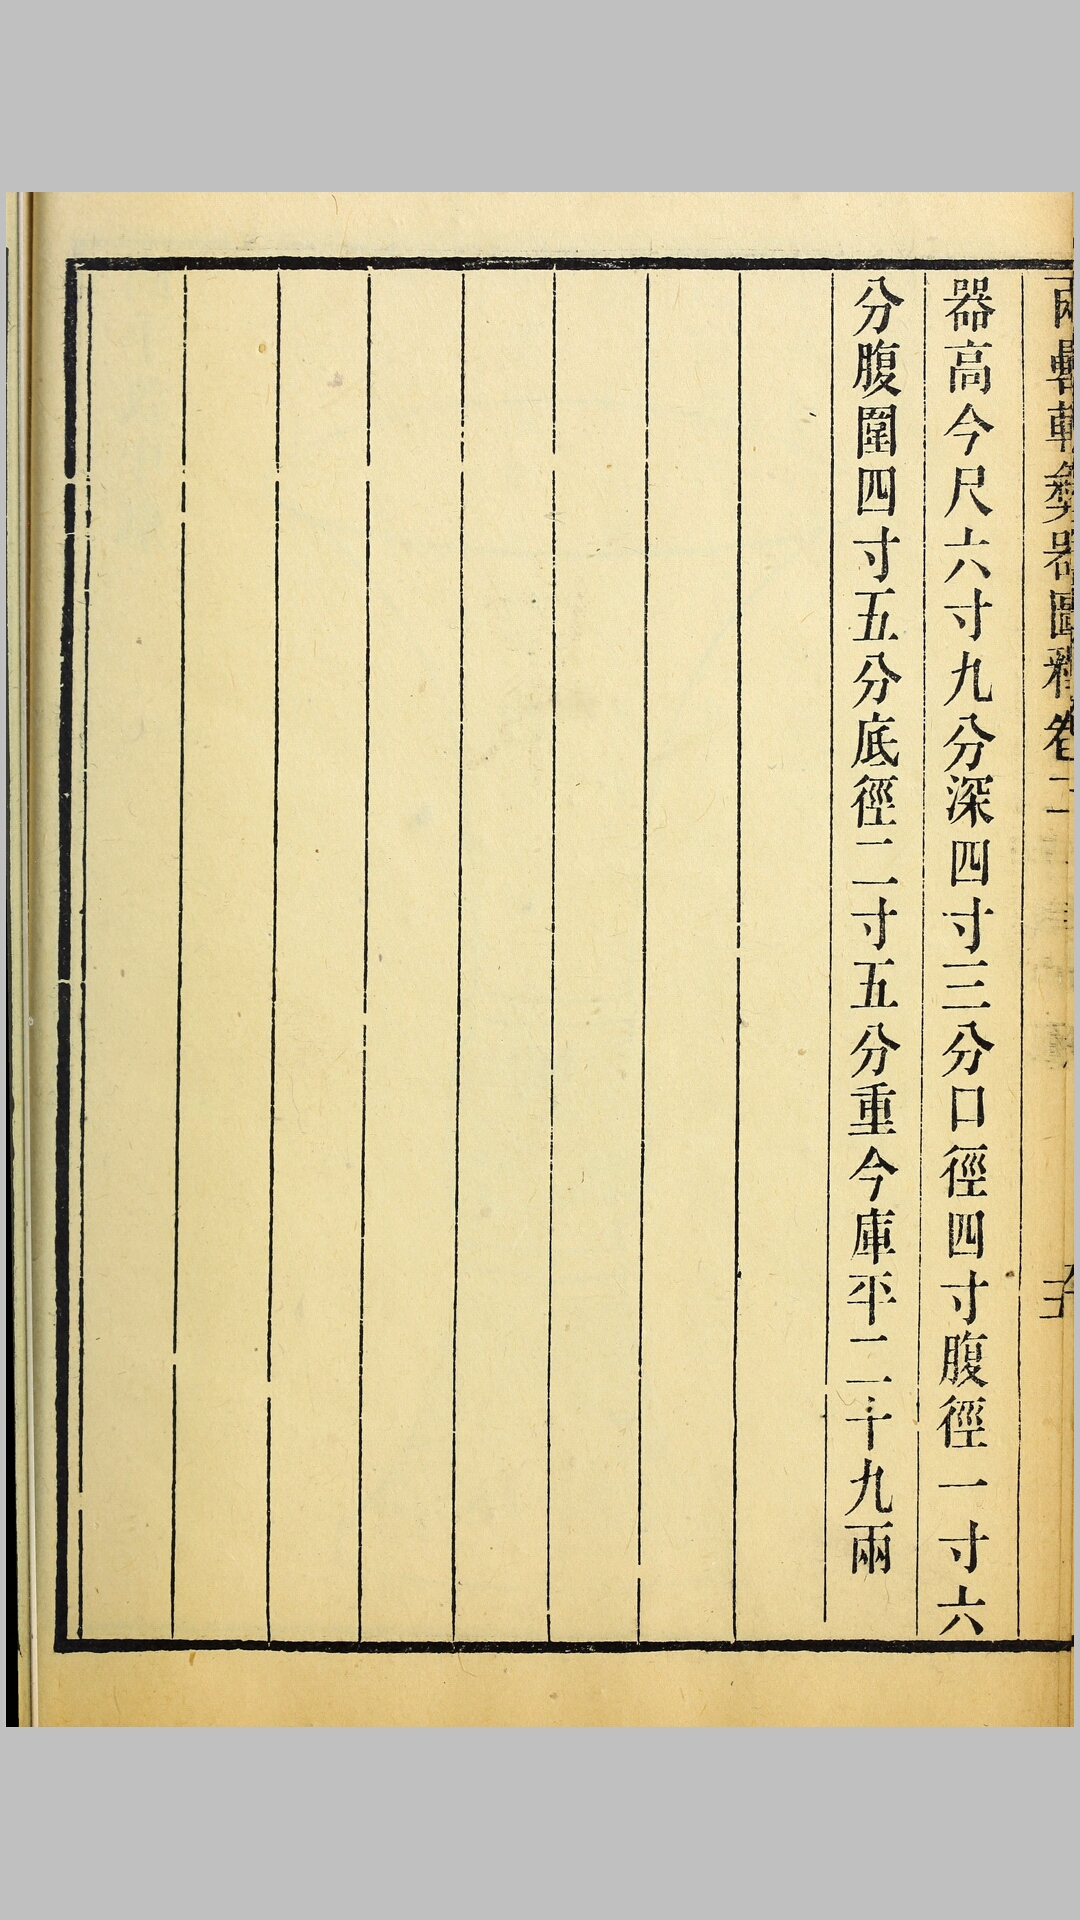 兩罍軒彝器圖釋卷二 五
器高今尺六寸九分深四寸三分口徑四寸腹徑一寸六
分腹圍四寸五分底徑二寸五分重今庫平二十九兩